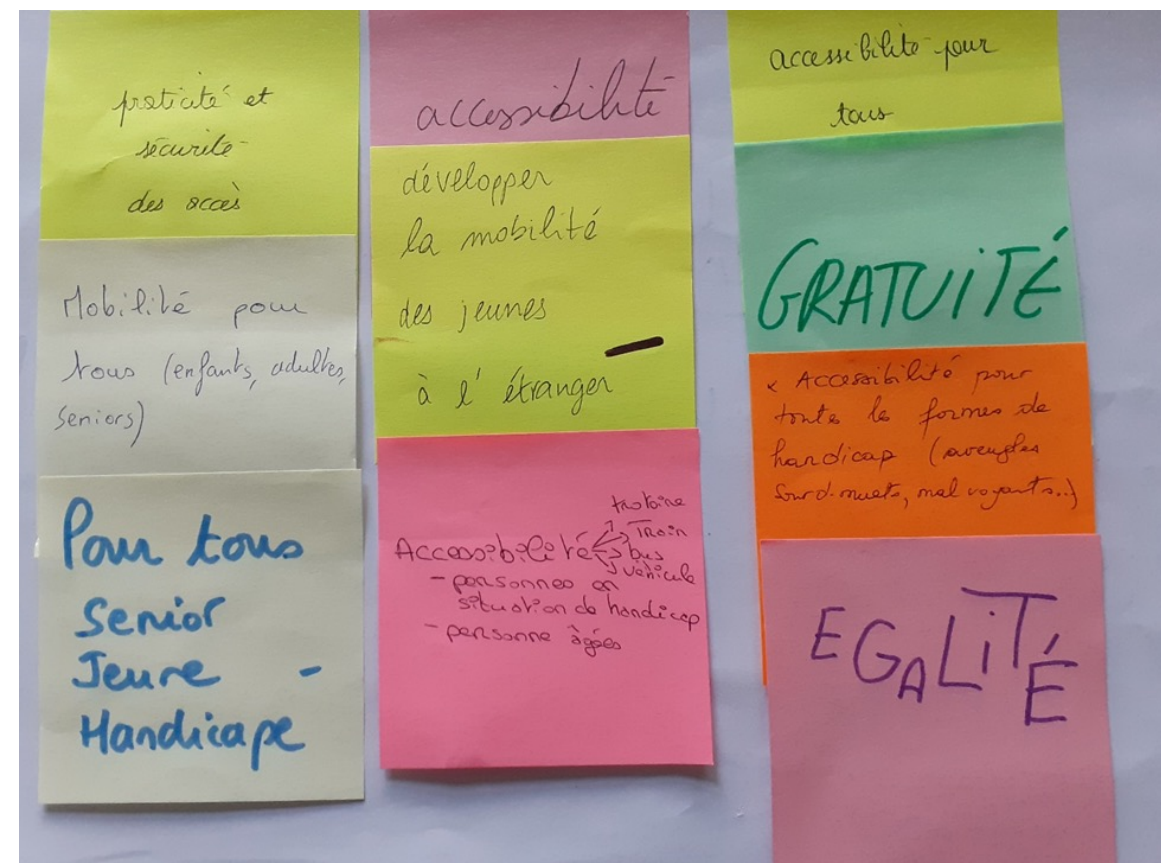 praticité et
sécurité
des accès
Mobilité pour
tous (enfants, adultes,
seniors)
Pour tous
Senior
Jeune -
Handicape
accessibilité
développer
la mobilité
des jeunes
à l'étranger
trotoire
Train
Accessibilité
bus
véhicule
- personnes en
situation de handicap
- personne âgées
accessibilité pour
tous
GRATUiTÉ
x Accessibilité pour
toute le formes de
handicap (aveugles
sourd-muets, mal voyants..)
EGALiTÉ